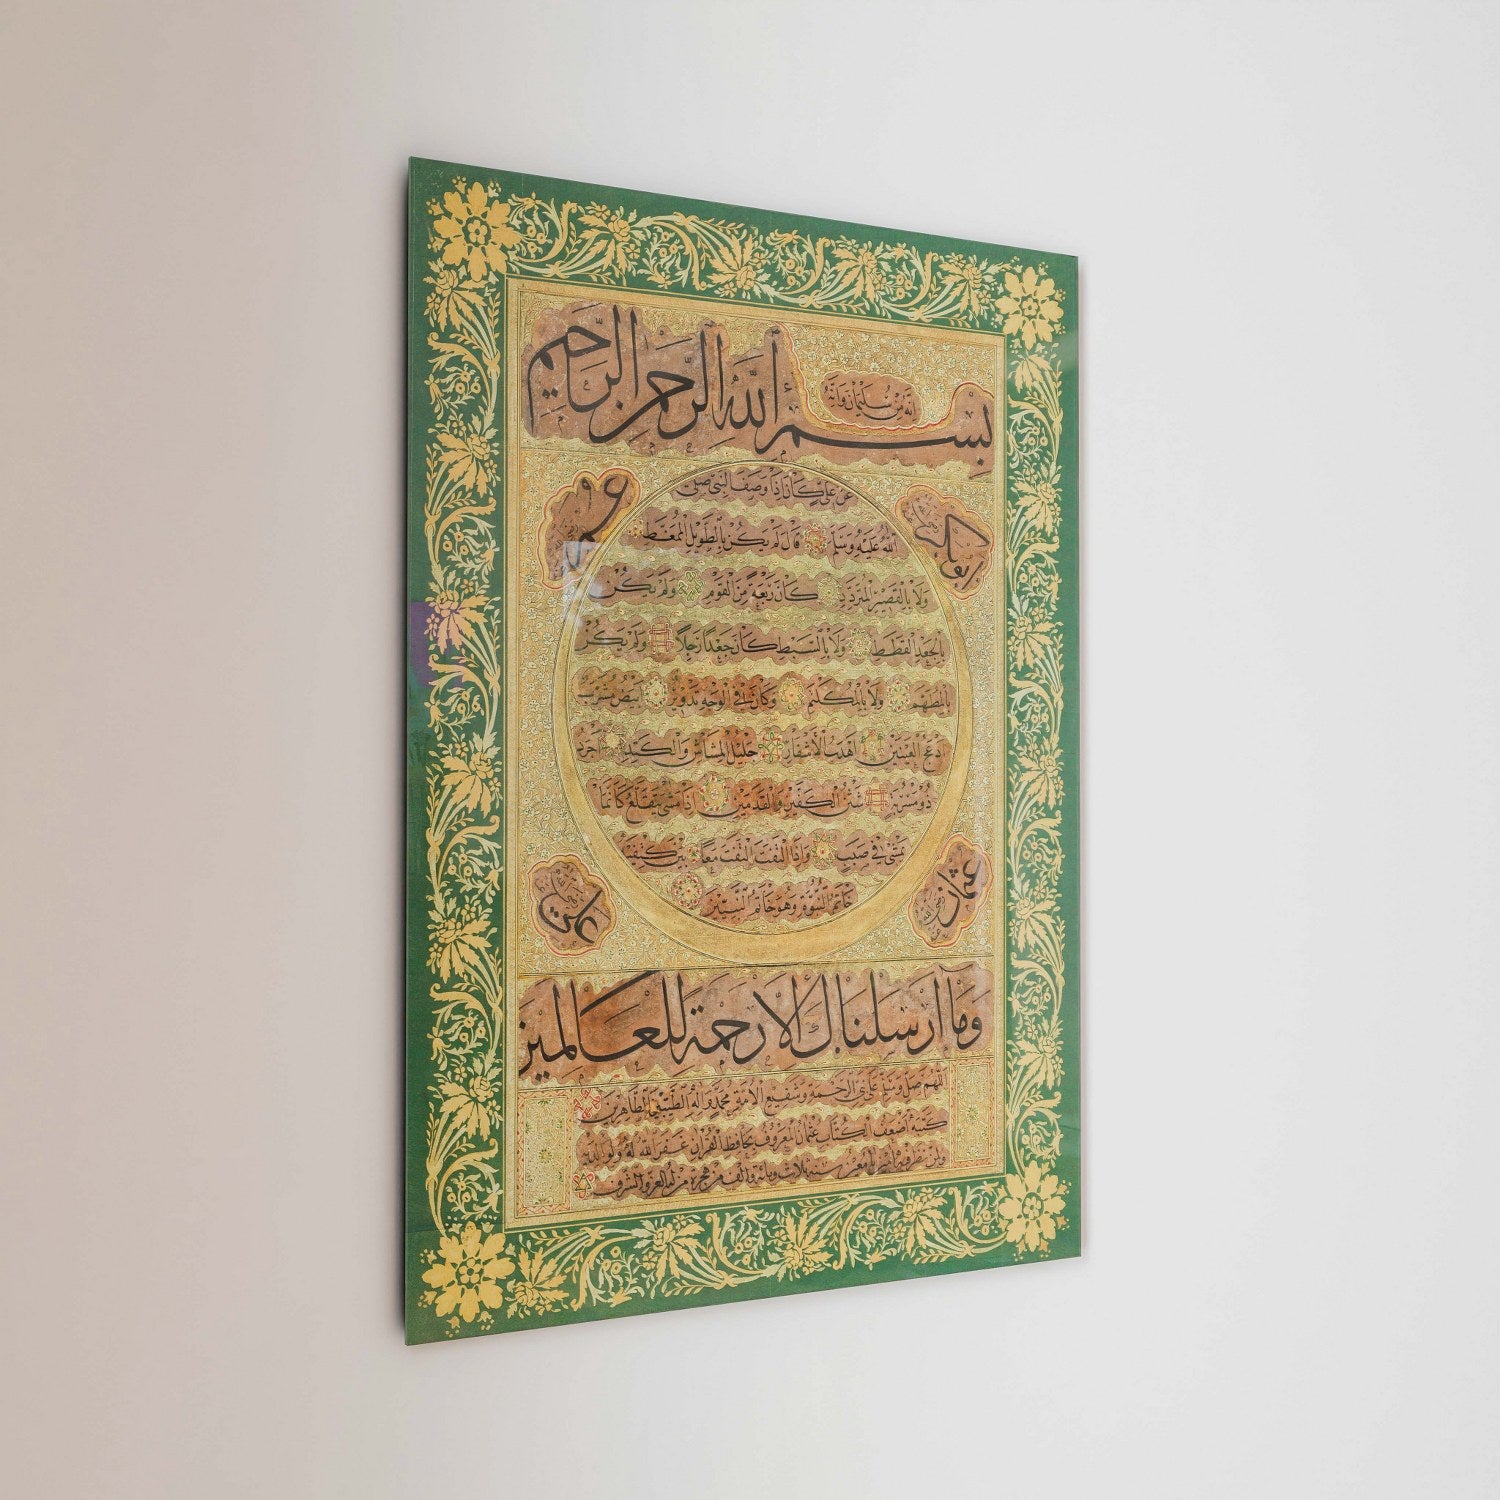 إنه من سليمان وإنه
بسم الله الرحمن الرحيم
ابوبكر
عمر
عن علي كان اذا وصف النبي صلى
الله عليه وسلم قال لم يكن بالطويل الممغط
ولا بالقصير المتردد كان ربعة من القوم ولم يكن
بالجعد القطط ولا بالسبط كان جعدا رجلا ولم يكن
بالمطهم ولا بالمكلثم وكان في الوجه تدوير ابيض مشرب
ادعج العينين اهدب الاشفار جليل المشاش والكتد اجرد
ذو مسربة شثن الكفين والقدمين اذا مشى يتقلع كانما
يمشي في صبب واذا التفت التفت معا بين كتفيه
خاتم النبوة وهو خاتم النبيين
عثمان
علي
وما ارسلناك الا رحمة للعالمين
اللهم صل وسلم على نبي الرحمة وشفيع الامة محمد واله الطيبين الطاهرين
كتبه اضعف الكتاب عثمان المعروف بحافظ القران غفر الله له ولوالديه
سنة ثلاث ومائة والف من هجرة من له العز والشرف